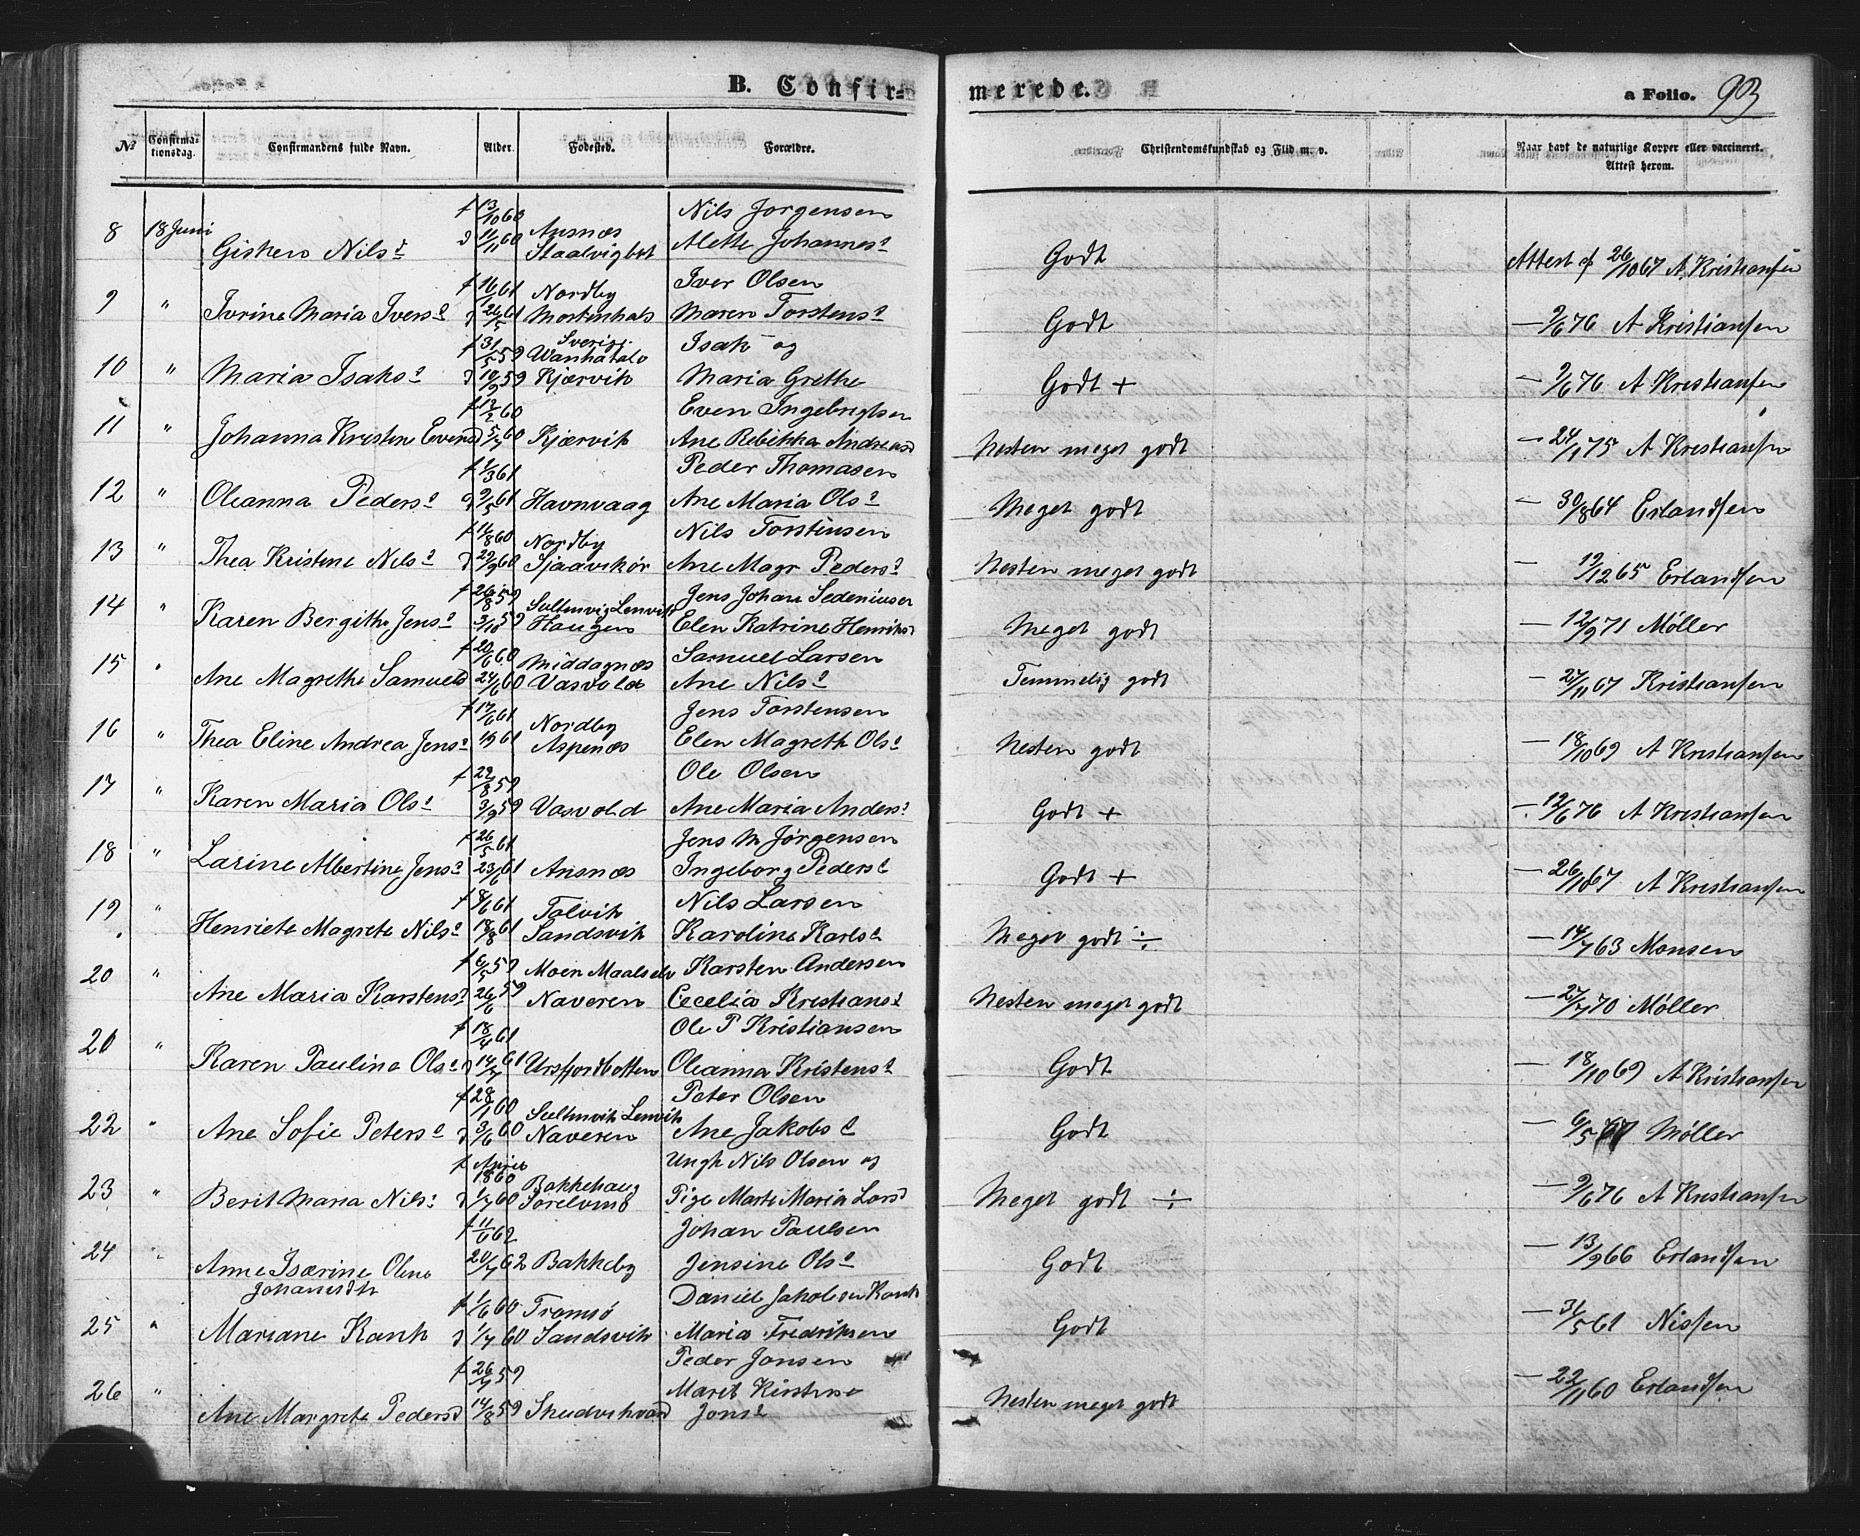 B. Confir=
merede.
a Folio. 93
№ Confirma-tionsdag. Confirmandens fulde Navn. Alder. Fødested. Forældre. Christendomskundskab og Flid m. v. Naar havt de naturlige Kopper eller vaccineret. Attest herom.
f 13/10 60 Nils Jørgensen
8 18 Juni Gisken Nilsd d 11/11 60 Ansnæs Staalvigbot Alette Johannesd Godt Attest af 26/10 67 A. Kristiansen
f 16/1 61 Nordby Iver Olsen
9 " Ivrine Maria Iversd d 26/5 61 Mortenhals Maren Torstensd Godt — 9/6 76 A Kristiansen
f 31/5 59 Sverige Wanhatalo Isak og
10 " Maria Isaksd d 10/9 59 Kjærvik Maria Grethe Godt + — 9/6 76 A Kristiansen
f 12/2 60 Even Ingebrigtsen
11 " Johanna Kristine Evensd 5/7 60 Kjærvik Ane Rebekka Andreasd Nesten meget godt — 24/1 75 A Kristiansen
f 1/3 61 Peder Thomasen
12 " Oleanna Pedersd d 9/5 61 Havnvaag Ane Maria Olsd Meget godt — 30/8 64 Erlandsen
f 11/8 60 Nordby Nils Torstensen
13 " Thea Kristine Nilsd d 29/9 60 Sjaavikør Ane Magr Pedersd Nesten meget godt — 19/12 65 Erlandsen
f 26/8 59 Sultenvig Lenvik Jens Johan Sedeniusen
14 " Karen Bergithe Jensd 3/10 59 Haugen Elen Katrine Henriksd Meget godt — 12/9 71 Møller
f 20/6 60 Middagnæs Samuel Larsen
15 " Ane Magrethe Samuelsd 24/6 60 Vasvold Ane Nilsd Temmelig godt — 27/11 67 Kristiansen
f 17/6 61 Nordby Jens Torstensen
16 " Thea Eline Andrea Jensd 19 61 Aspenæs Elen Magreth Olsd Nesten godt — 18/10 69 A Kristiansen
f 22/8 59 Ole Olsen
17 " Karen Maria Olsd 3/9 59 Vasvold Ane Maria Andersd Godt + — 12/6 76 A Kristiansen
f 26/5 61 Jens M Jørgensen
18 " Larine Albertine Jensd 23/6 61 Ansnæs Ingeborg Pedersd Godt + — 26/10 67 A Kristiansen
f 8/6 61 Talvik Nils Larsen
19 " Henriete Magrete Nilsd 18/8 61 Sandsvik Karoline Karlsd Meget godt ÷ — 14/7 63 Monsen
f 6/5 59 Moen Maalselv Karsten Andersen
20 " Ane Maria Karstensd 26/6 59 Naveren Cecelia Kristiansd Nesten meget godt — 27/7 70 Møller
f 18/4 61 Ole P Kristiansen
20 " Karen Paulina Olsd d 14/7 61 Ursfjordbotten Oleanna Kristensd Godt — 18/10 69 A Kristiansen
f 28/1 60 Sultenvik Lenvik Peter Olsen
22 " Ane Sofie Petersd d 3/6 60 Naveren Ane Jakobsd Godt — 6/5 Møller
f April 1860 Bakkehaug Ungk Nils Olsen og
23 " Berit Maria Nilsd d 1/7 60 Sørelvmo Pige Marte Maria Larsd Meget godt ÷ — 9/6 76 A Kristiansen
f 11/6 62 Johan Paulsen
24 " Anne Isærine Oline Johansdtr 20/7 62 Bakkeby Jensine Olsd Godt — 13/9 66 Erlandsen
f 1/6 60 Tromsø Daniel Jakobsen Kank
25 " Mariane Kank d 1/7 60 Sandsvik Maria Fredriksen Godt — 31/5 61 Nissen
f 26/7 59 Peder Jonsen
26 " Ane Margrete Pedersd 14/8 59 Skudvikvand Marit Kirstine Jonsd Nesten meget godt — 22/11 60 Erlandsen